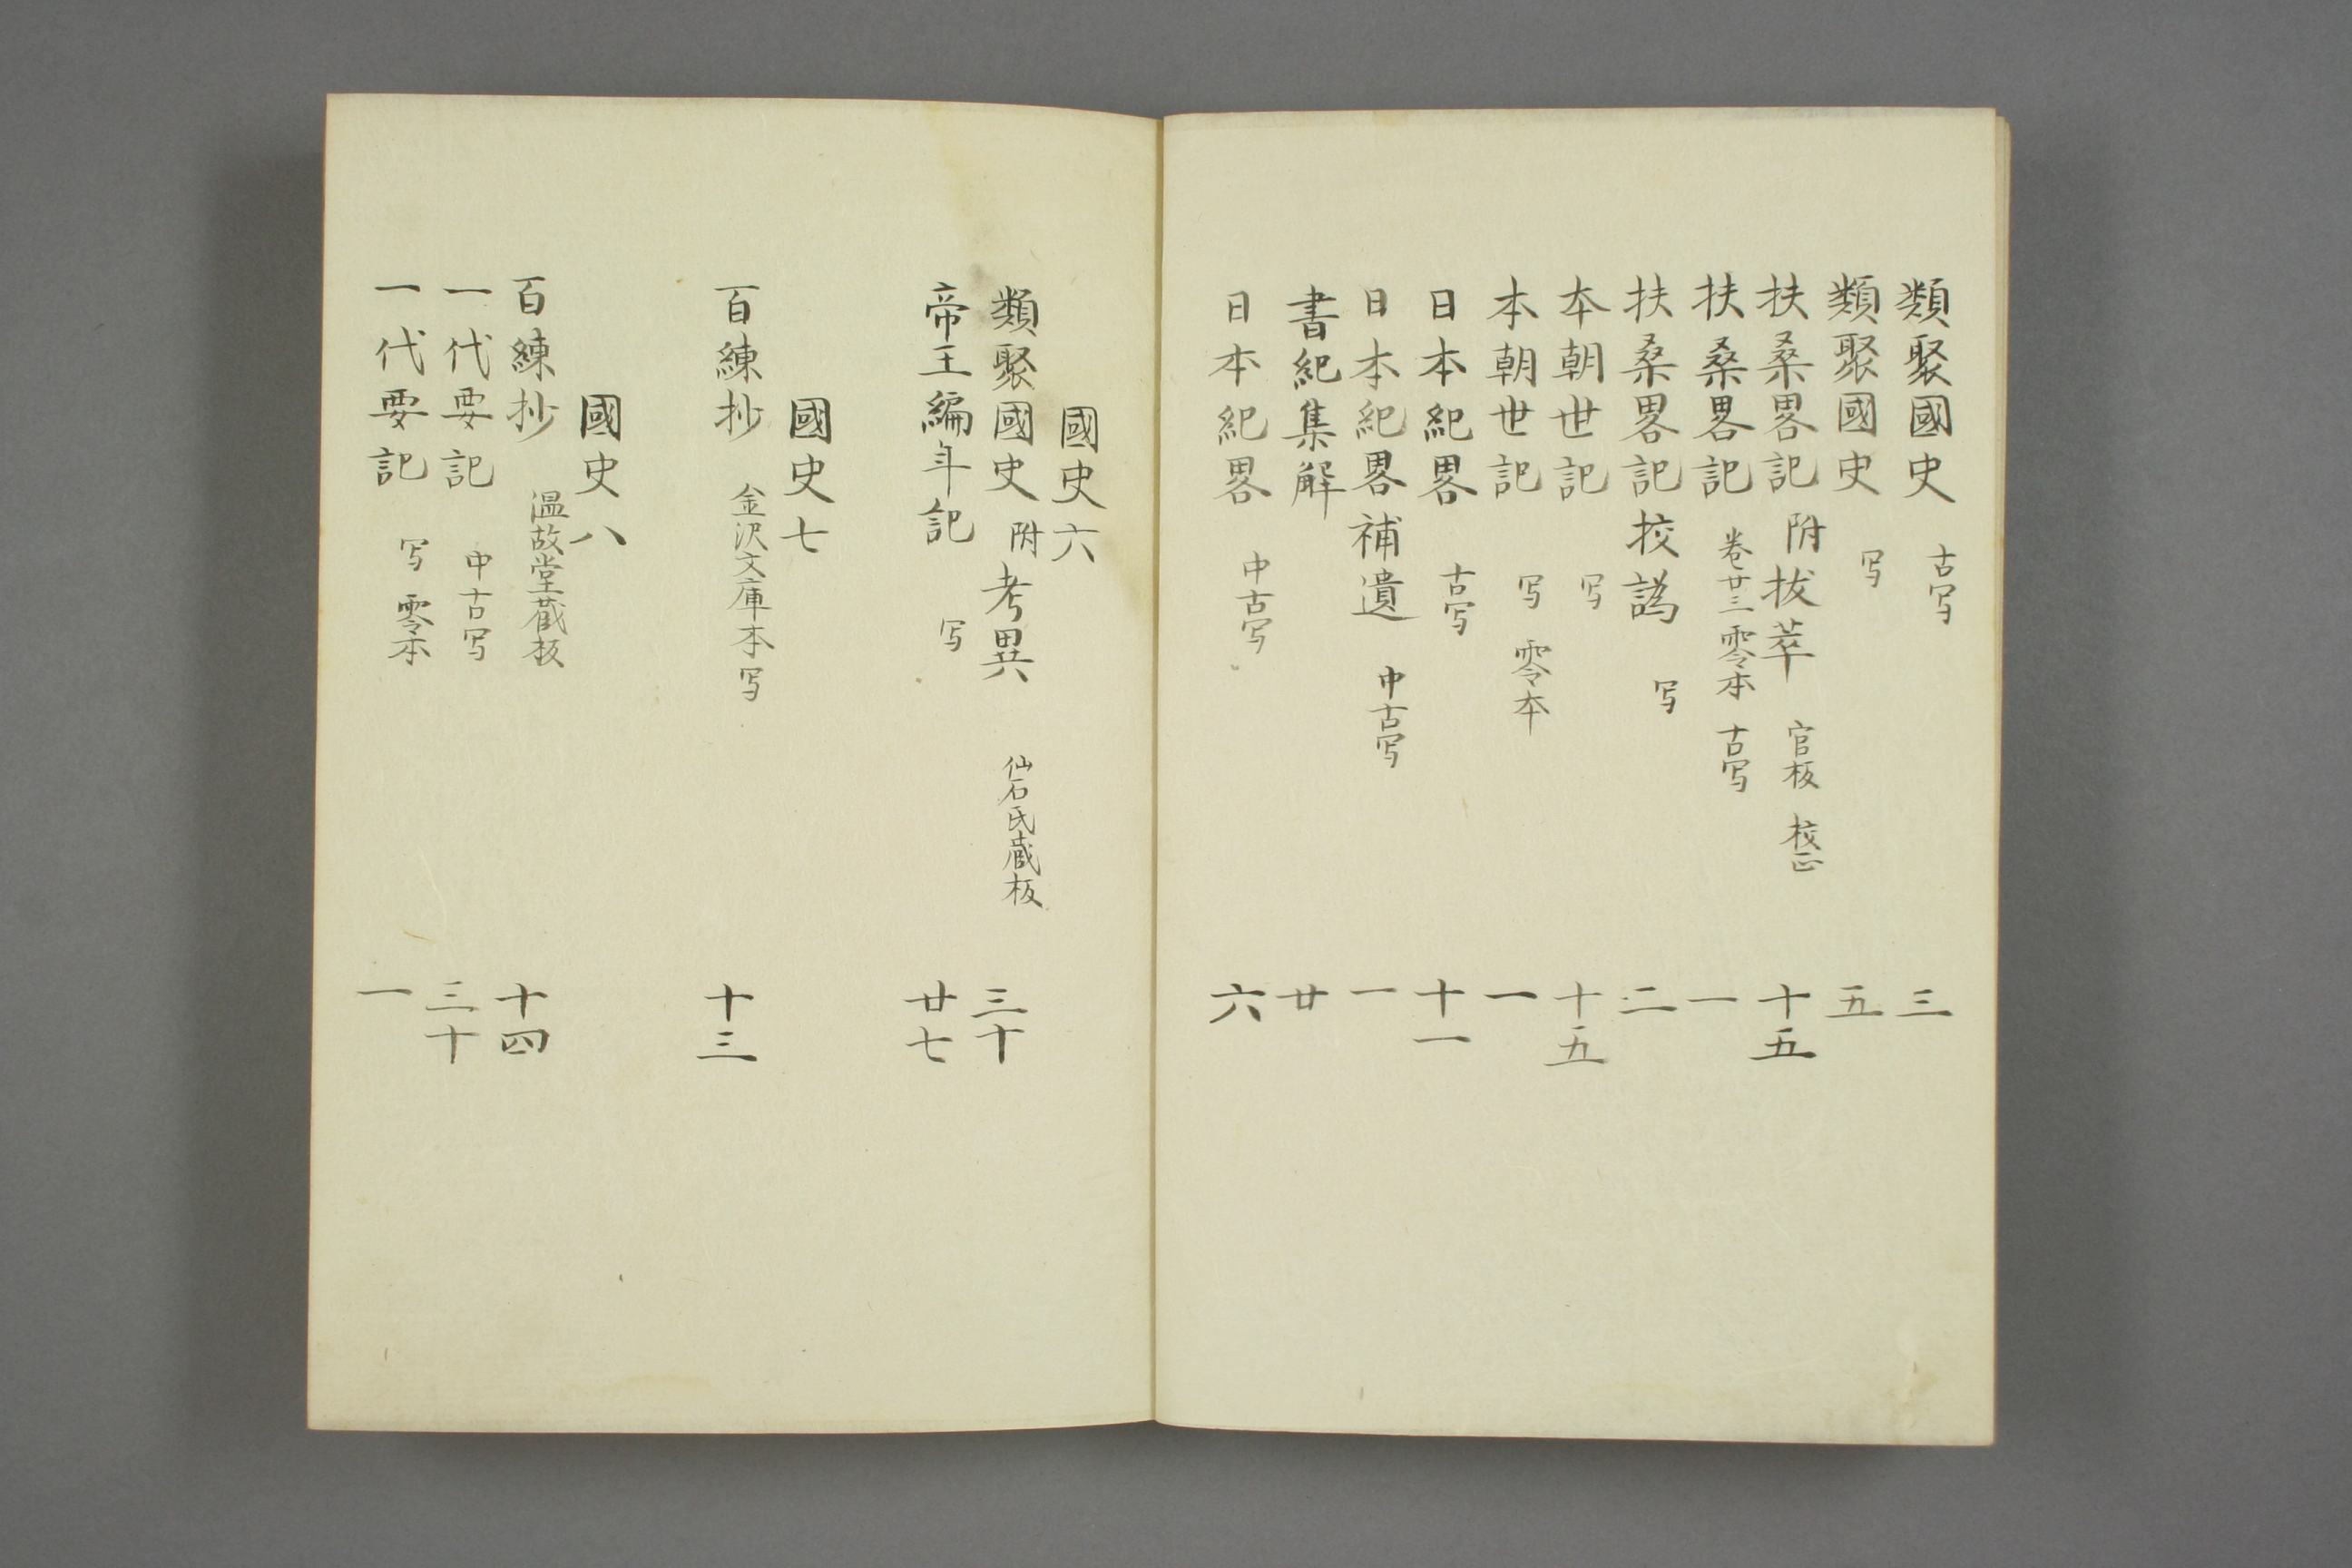 類聚國史 古写 三
類聚國史 写 五
扶桑畧記 附拔萃 官板 校正 十五
扶桑畧記 巻廿三 零本 古写 一
扶桑畧記校譌 写 二
本朝世記 写 十五
本朝世記 写 零本 一
日本紀畧 古写 十一
日本紀畧補遺 中古写 一
書紀集解 廿
日本紀畧 中古写 六
國史六
類聚國史 附考異 仙石氏蔵板 三十
帝王編年記 写 廿七
國史七
百練抄 金沢文庫本写 十三
國史八
百練抄 温故堂蔵板 十四
一代要記 中古写 三十
一代要記 写 零本 一